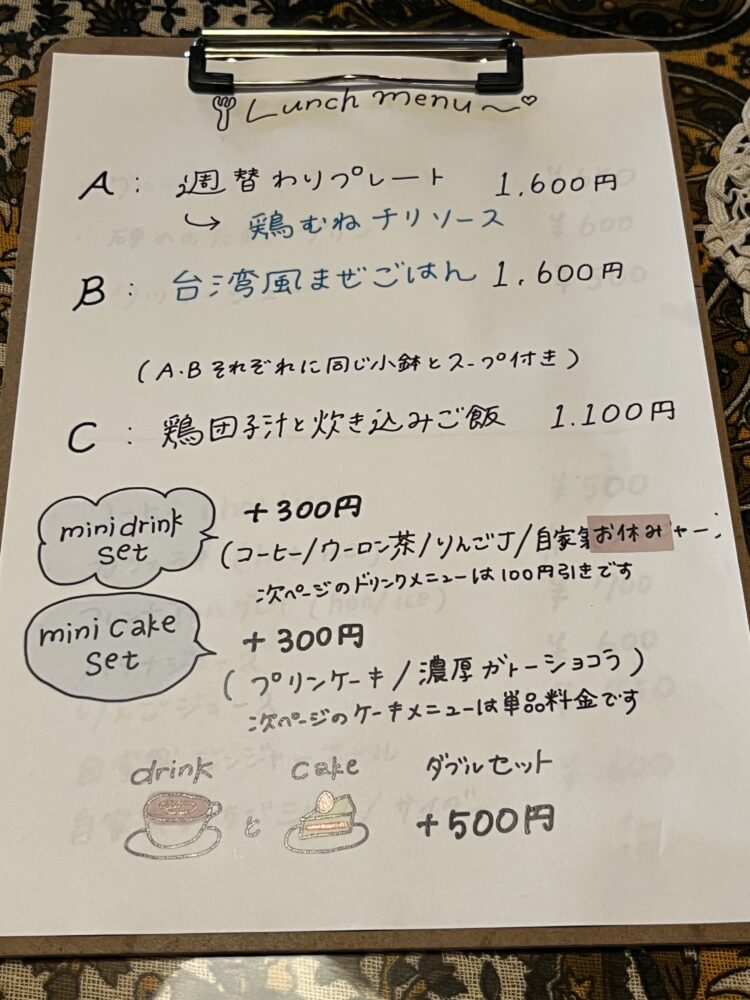 Lunch menu～♡
A : 週替わりプレート 1,600円
↳ 鶏むねチリソース
B : 台湾風まぜごはん 1,600円
(A・Bそれぞれに同じ小鉢とスープ付き)
C : 鶏団子汁と炊き込みご飯 1.100円
mini drink set +300円
(コーヒー/ウーロン茶/りんごJ/自家 お休み ャー
次ページのドリンクメニューは100円引きです
mini cake set +300円
(プリンケーキ/濃厚ガトーショコラ)
次ページのケーキメニューは単品料金です
drink と cake ダブルセット
+500円